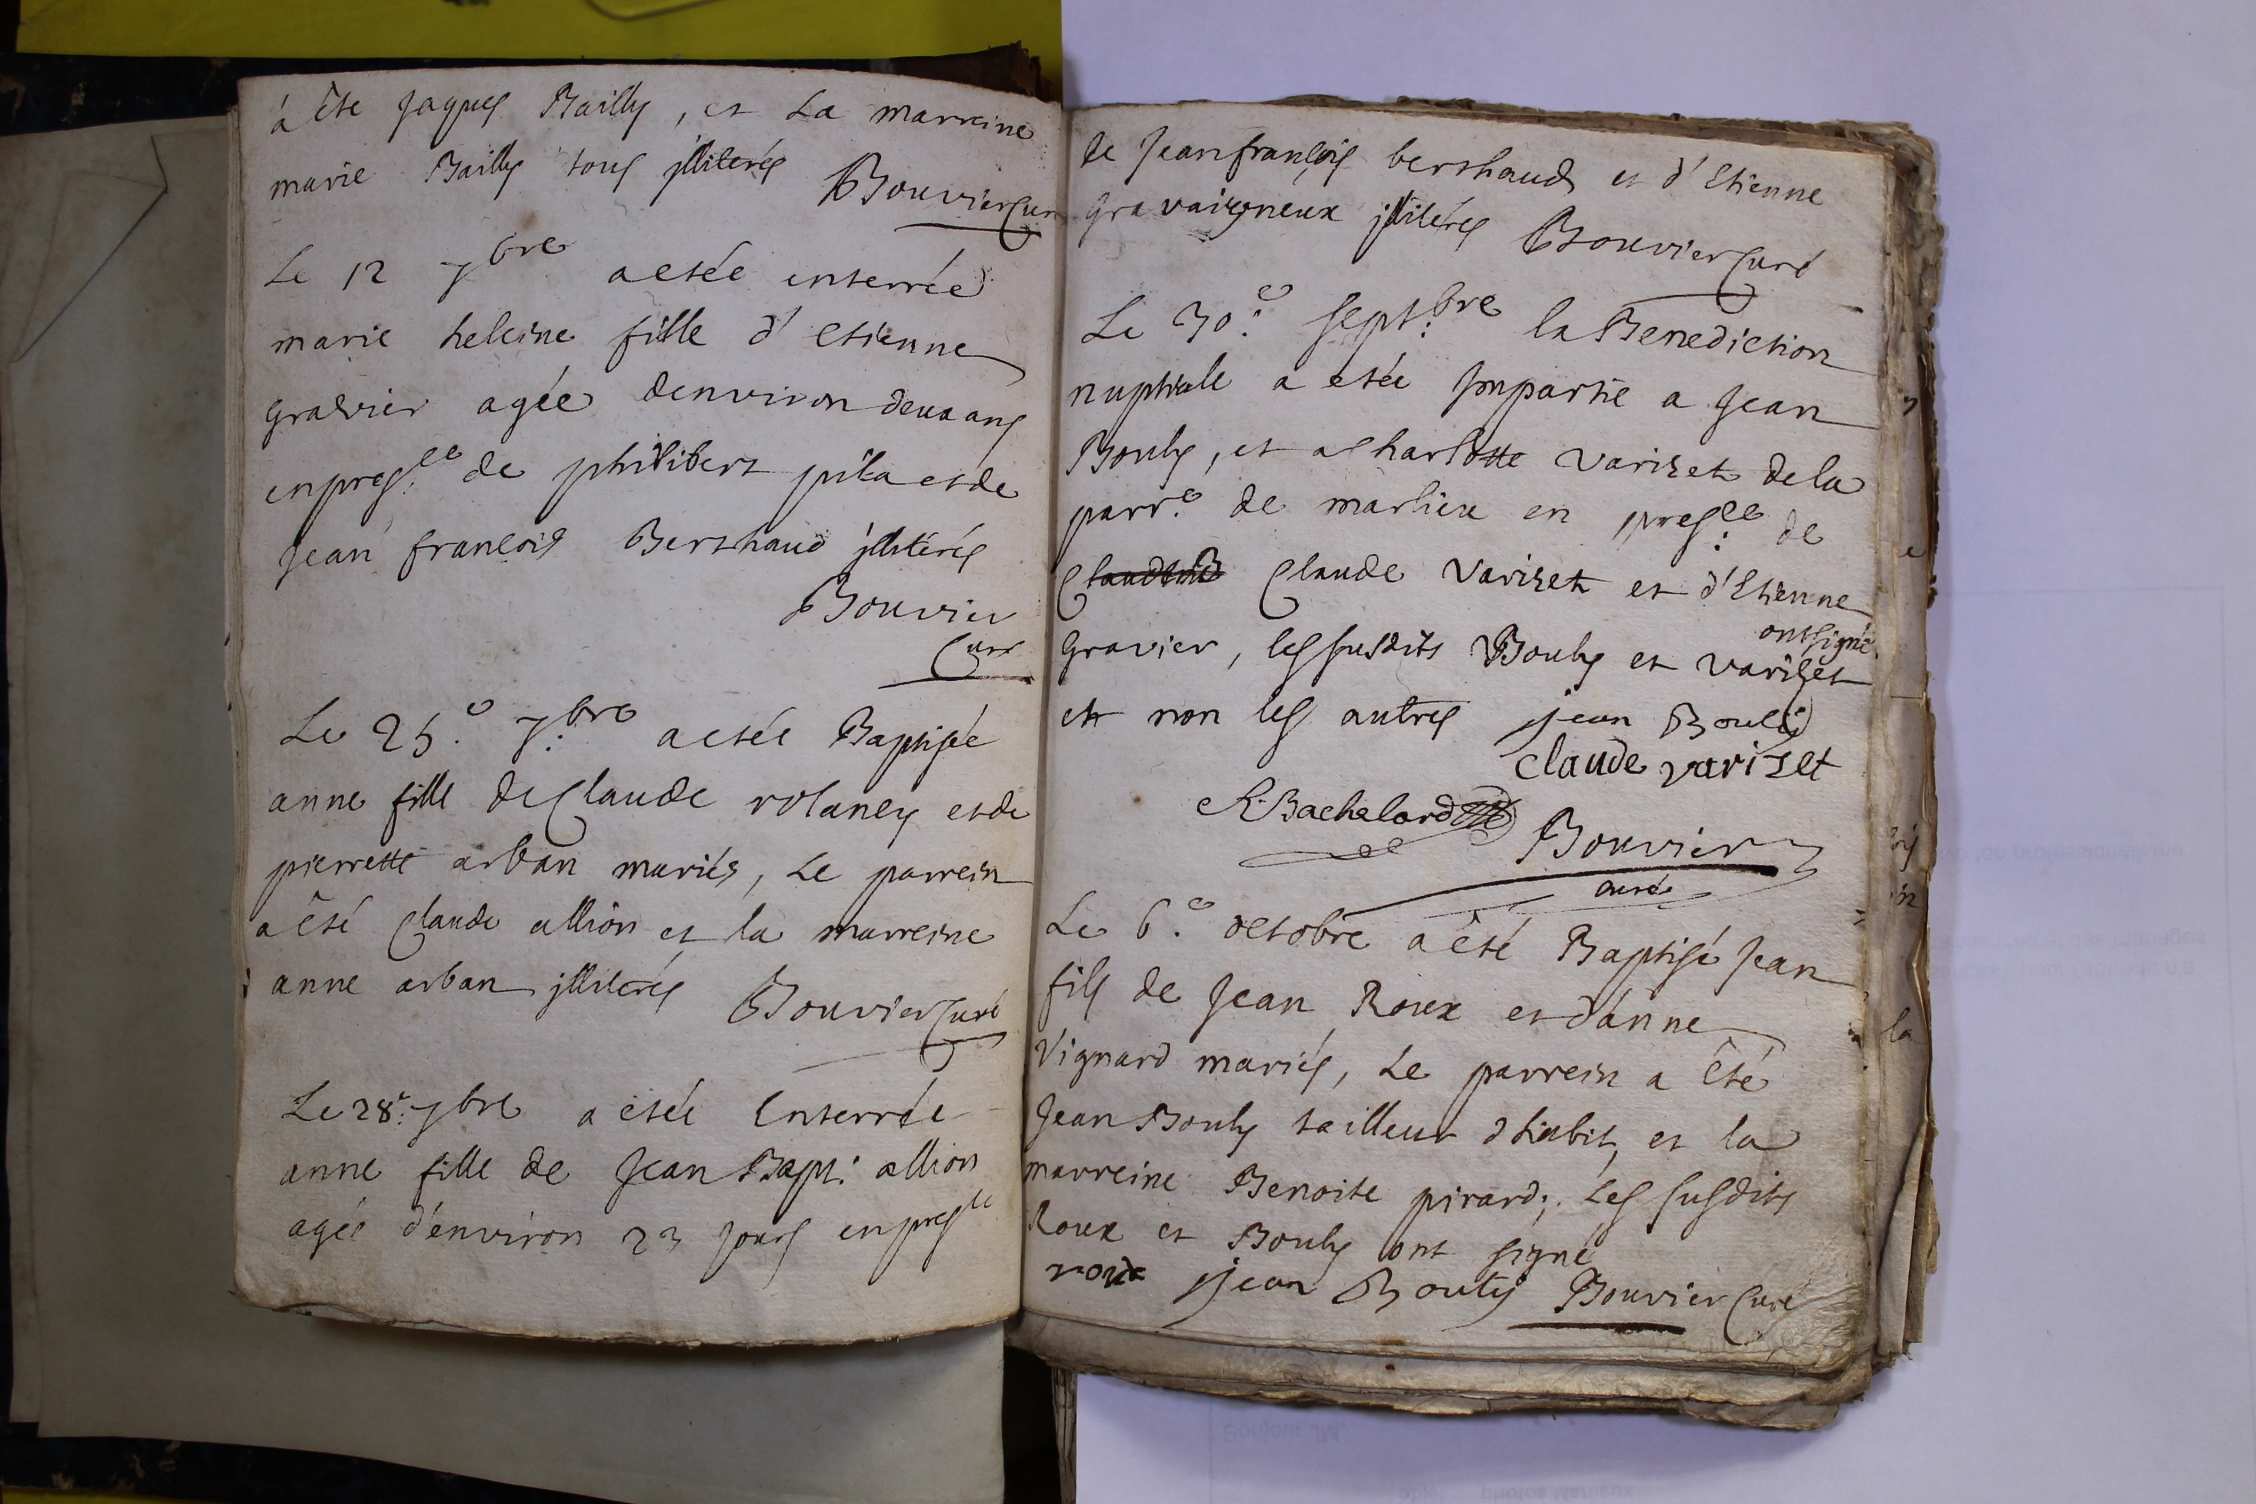 à ête jaques Bailly, et La marreine
marie Bailly tous jlliterés Bouvier Cur
Le 12 7bre a etée enterrée
marie heleine fille d'etienne
gravier agée denviron deux ans
en presce de philibert pila et de
jean françois Berthaud jlliterés
Bouvier
Curé
Le 25e 7bre a etée Baptisée
anne fille de Claude rolaney et de
pierrette arban mariés, Le parrein
a êté Claude allion et la marreine
anne arban jlliterés Bouvier Curé
Le 28e 7bre a etée Enterrée
anne fille de Jean Bapt: allion
agée d'environ 23 jours en presce
de Jean françois berthaud et d'Etienne
gravaigneux jlliterés Bouvier Curé
Le 30e septbre la Benediction
nuptiale a etée jmpartie a Jean
Bouly, et a Charlotte Varizet de la
parre de marlieu en presce de
Claude Varizet et d'Etienne
gravier, les susdits Bouly et varizet
ont signé
et non les autres jean Bouly
Claude varizet
Bachelard Bouvier
curé
Le 6e octobre a êté Baptisé Jean
fils de Jean Roux et d'anne
Vignard mariés, Le parrein a êté
Jean Bouly tailleur d'habit, et la
marreine Benoite pirard; Les susdits
Roux et Bouly ont signé
roux jean Bouly Bouvier Curé